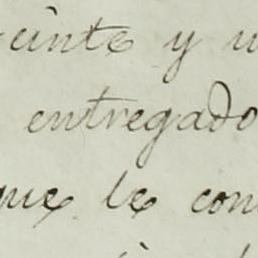 einte y u
entregado
que le con